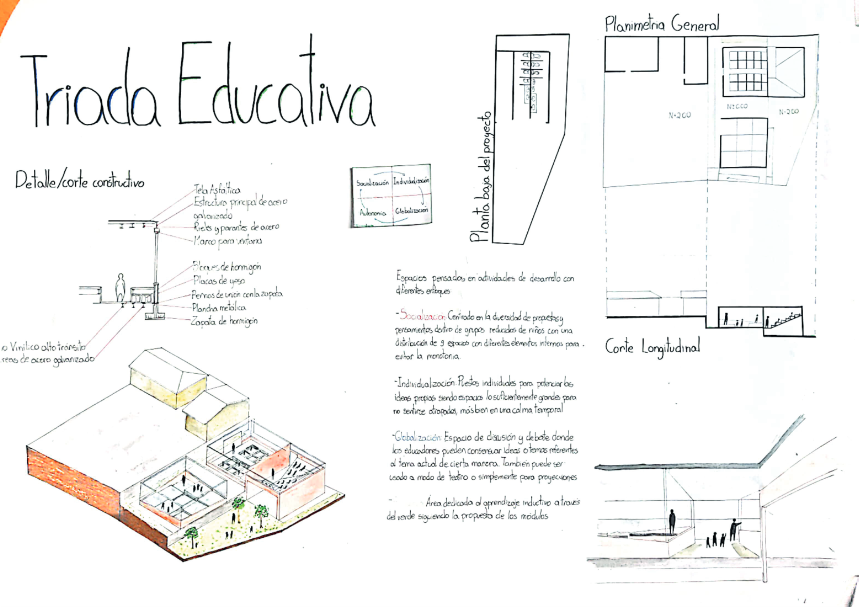 Triada Educativa
Detalle/corte constructivo
Tela Asfáltica
Estructura principal de acero
galvanizado
Rieles y parantes de acero
Marco para vitrina
Bloques de hormigón
Placas de yeso
Pernos de unión con la zapata
Plancha metálica
Zapata de hormigón
Vinílico alto tránsito
de acero galvanizado
Socialización Individualización
Autonomía Globalización
Planta baja del proyecto
Planimetria General
N+3.00
Corte Longitudinal
Espacios pensados en actividades de desarrollo con
diferentes enfoques
-Socialización Centrado en la diversidad de propuestas y
pensamientos dentro de grupos reducidos de niños con una
distribución de 9 espacios con diferentes elementos internos para
evitar la monotonía.
-Individualización Puestos individuales para potenciar las
ideas propias siendo espacios lo suficientemente grandes para
no sentirse atrapados, más bien en una calma temporal
-Globalización Espacio de discusión y debate donde
los educadores pueden consensuar ideas o temas referentes
al tema actual de cierta manera. También puede ser
usado a modo de teatro o simplemente para proyecciones
- Área dedicada al aprendizaje inductivo a traves
del verde siguiendo la propuesta de los módulos